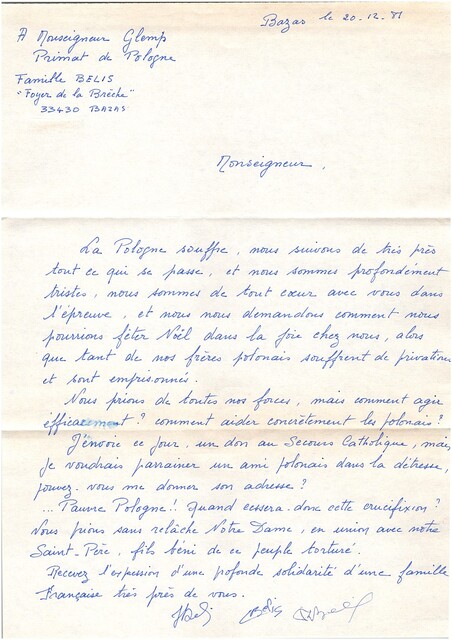 Bazas le 20.12.81
A Monseigneur Glemp
Primat de Pologne
Famille BELIS
"Foyer de la Brèche"
33430 BAZAS
Monseigneur,
La Pologne souffre, nous suivons de très près
tout ce qui se passe, et nous sommes profondément
tristes, nous sommes de tout cœur avec vous dans
l'épreuve, et nous nous demandons comment nous
pourrions fêter Noël dans la joie chez nous, alors
que tant de nos frères polonais souffrent de privations
et sont emprisonnés.
Nous prions de toutes nos forces, mais comment agir
efficacement? comment aider concrètement les polonais?
J'envoie ce jour, un don au Secours Catholique, mais
je voudrais parrainer un ami polonais dans la détresse,
pouvez-vous me donner son adresse?
... Pauvre Pologne!! Quand cessera-donc cette crucifixion?
Nous prions sans relâche Notre Dame, en union avec notre
Saint-Père, fils béni de ce peuple torturé.
Recevez l'expression d'une profonde solidarité d'une famille
Française très près de vous.